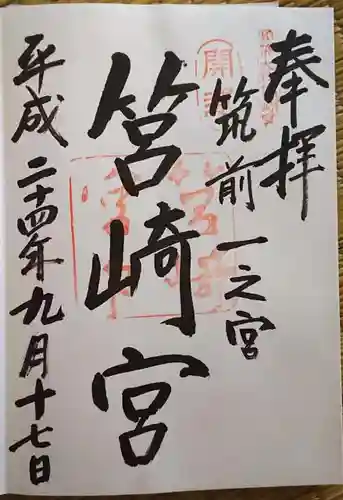 奉拝
筑前一之宮
筥崎宮
平成二十四年九月十七日